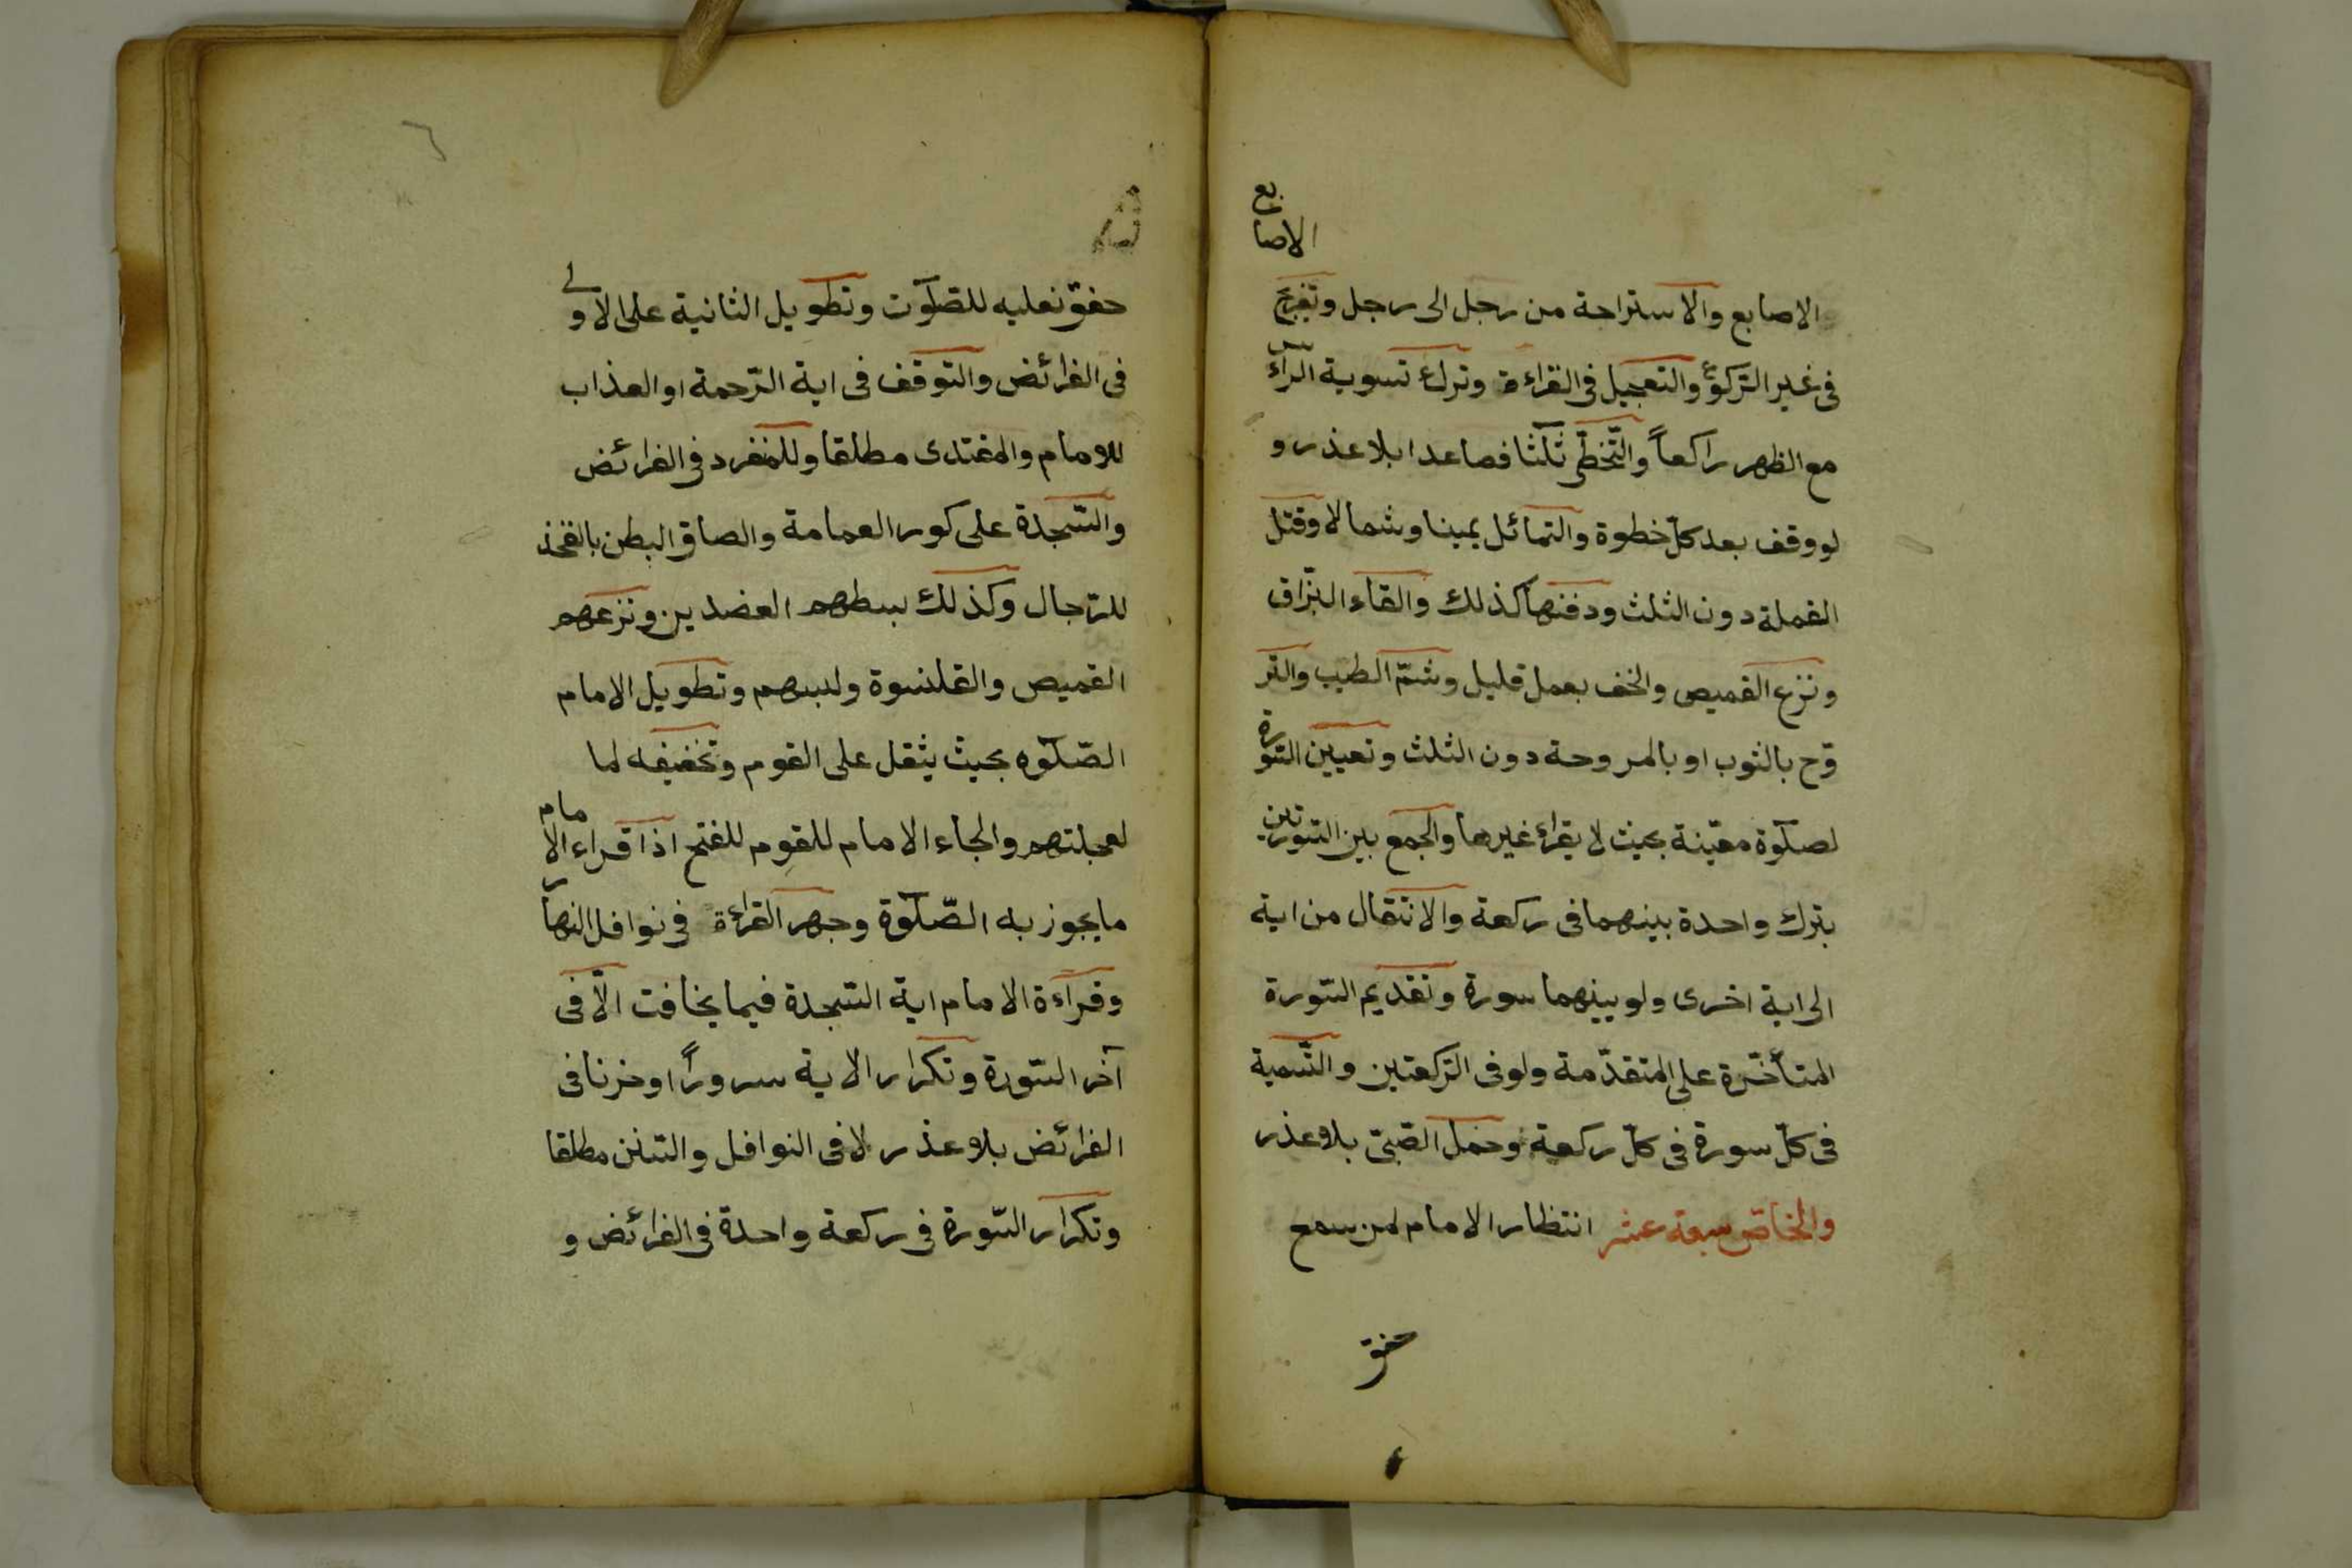 الاصابع والاستراحة من رجل الى رجل وتفريج الاصابع
فى غير الرّكوع والتعجيل فى القراءة وترك تسوية الرأس
مع الظهر راكعاً والتّخطّى ثلٰثا فصاعدا بلا عذر و
لو وقف بعد كلّ خطوة والتمائل يمينا وشمالا وقتل
القملة دون الثلث ودفنها كذلك والقاء البزاق
ونزع القميص والخف بعمل قليل وشمّ الطيب والتر
وّح بالثوب او بالمروحة دون الثلث وتعيين السّورة
لصلٰوة معيّنة بحيث لا يقراء غيرها والجمع بين السّورتين
بترك واحدة بينهما فى ركعة والانتقال من اية
الى اية اخرى ولو بينهما سورة وتقديم السّورة
المتأخّرة على المتقدّمة ولو فى الرّكعتين والتّسمية
فى كلّ سورة فى كلّ ركعة وحمل الصّبىّ بلا عذر
والخاصّ سبعة عشر انتظار الامام لمن سمع
خفق
خفق نعليه للصّلٰوت وتطويل الثانية على الاولى
فى الفرائض والتوقف فى اية الرّحمة او العذاب
للامام والمقتدى مطلقا وللمنفرد فى الفرائض
والسّجدة على كور العمامة والصاق البطن بالفخذ
للرّجال وكذلك بسطهم العضدين ونزعهم
القميص والقلنسوة ولبسهم وتطويل الامام
الصّلٰوه بحيث يثقل على القوم وتخفيفه لما
لعجلتهم والجاء الامام للقوم للفتح اذا قراء الامام
ما يجوز به الصّلٰوة وجهر القراءة فى نوافل النهار
وقراءة الامام اية السّجدة فيما يخافت الّا فى
آخر السّورة وتكرار الاية سروراً او حزنا فى
الفرائض بلا عذر لا فى النوافل والسّنن مطلقا
وتكرار السّورة فى ركعة واحدة فى الفرائض و